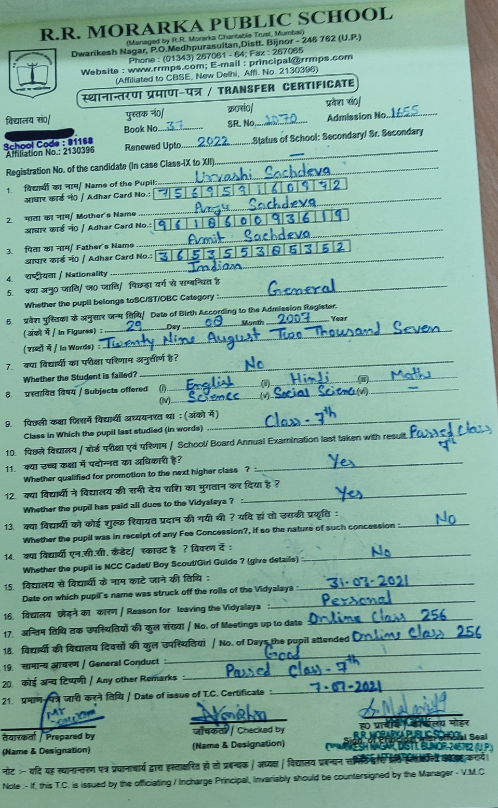 R.R. MORARKA PUBLIC SCHOOL
(Managed by R.R. Morarka Charitable Trust, Mumbai)
Dwarikesh Nagar, P.O.Medhpurasultan,Distt. Bijnor - 246 762 (U.P.)
Phone : (01343) 267061 - 64; Fax : 267065
Website : www.rrmps.com; E-mail : principal@rrmps.com
(Affiliated to CBSE, New Delhi, Affl. No. 2130396)
स्थानान्तरण प्रमाण-पत्र / TRANSFER CERTIFICATE
विद्यालय सं0/ पुस्तक नं0/ क्र0सं0/ प्रवेश सं0/
Book No. 37 SR. No. Admission No. 1655
School Code : 81168
Affiliation No.: 2130396 Renewed Upto 2022 Status of School: Secondary/ Sr. Secondary
Registration No. of the candidate (in case Class-IX to XII) —
1. विद्यार्थी का नाम/ Name of the Pupil: Urvashi Sachdeva
आधार कार्ड नं0 / Adhar Card No.:
2. माता का नाम/ Mother's Name Anju Sachdeva
आधार कार्ड नं0/ Adhar Card No.:
3. पिता का नाम/ Father's Name Amit Sachdeva
आधार कार्ड नं0/ Adhar Card No.:
4. राष्ट्रीयता / Nationality Indian
5. क्या अनु0 जाति/ ज0 जाति/ पिछड़ा वर्ग से सम्बन्धित है
Whether the pupil belongs toSC/ST/OBC Category : General
6. प्रवेश पुस्तिका के अनुसार जन्म तिथि/ Date of Birth According to the Admission Register.
(अंको में / In Figures) : 29 Day 08 Month 2007 Year
(शब्दों में / In Words) : Twenty Nine August Two Thousand Seven
7. क्या विद्यार्थी का परीक्षा परिणाम अनुत्तीर्ण है?
Whether the Student is failed? No
8. प्रस्तावित विषय / Subjects offered (i) English (ii) Hindi (iii) Maths
(iv) Science (v) Social Science (vi) —
9. पिछली कक्षा जिसमें विद्यार्थी अध्ययनरत था : (अंको में)
Class in Which the pupil last studied (in words) Class - 7th
10. पिछले विद्यालय / बोर्ड परीक्षा एवं परिणाम / School/ Board Annual Examination last taken with result Passed Class 7th
11. क्या उच्च कक्षा में पदोन्नत का अधिकारी है?
Whether qualified for promotion to the next higher class ? : Yes
12. क्या विद्यार्थी ने विद्यालय की सभी देय राशि का भुगतान कर दिया है ?
Whether the pupil has paid all dues to the Vidyalaya ? : Yes
13. क्या विद्यार्थी को कोई शुल्क रियायत प्रदान की गयी थी ? यदि हां तो उसकी प्रकृति :
Whether the pupil was in receipt of any Fee Concession?, if so the nature of such concession : No
14. क्या विद्यार्थी एन.सी.सी. कैडेट/ स्काउट है ? विवरण दें :
Whether the pupil is NCC Cadet/ Boy Scout/Girl Guide ? (give details) : No
15. विद्यालय से विद्यार्थी के नाम काटे जाने की तिथि :
Date on which pupil's name was struck off the rolls of the Vidyalaya : 31-03-2021
16. विद्यालय छोड़ने का कारण / Reason for leaving the Vidyalaya Personal
17. अन्तिम तिथि तक उपस्थितियों की कुल संख्या / No. of Meetings up to date Online Class 256
18. विद्यार्थी की विद्यालय दिवसों की कुल उपस्थितियां / No. of Days the pupil attended Online Class 256
19. सामान्य आचरण / General Conduct : Good
20. कोई अन्य टिप्पणी / Any other Remarks : Passed Class - 7th
21. प्रमाण-पत्र जारी करने तिथि / Date of issue of T.C. Certificate : 7-07-2021
तैयारकर्ता / Prepared by जाँचकर्ता / Checked by
(Name & Designation) (Name & Designation)
R.R. MORARKA PUBLIC SCHOOL
DWARIKESH NAGAR, DISTT. BIJNOR-246762 (U.P.)
Note :- If this, T.C. is issued by the officiating / Incharge Principal, Invariably should be countersigned by the Manager - V.M.C.